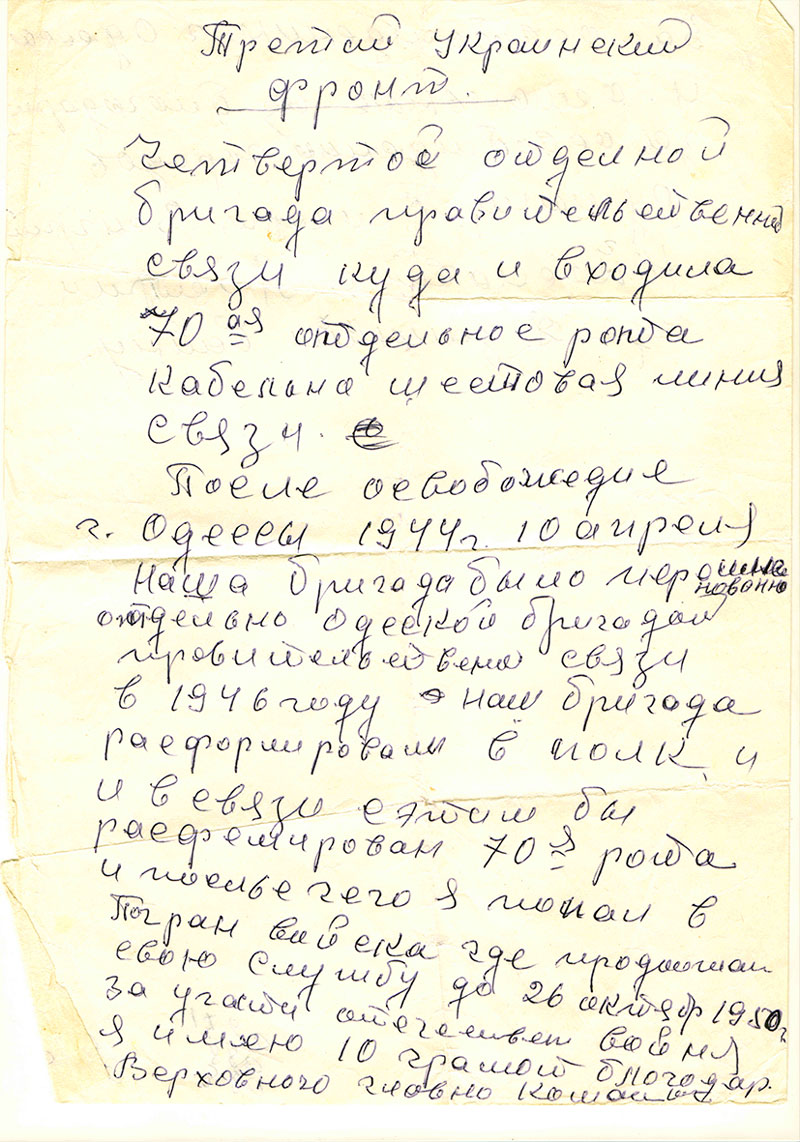 Третий украинский
фронт.
Четвертой отделной
бригада правительственной
связи куда и входила
70 ая отдельное рота
кабельно шестовая линия
связи.
После освобождения
г. Одессы 1944 г. 10 апреля
Наша бригада было переимено
нованно
отдельно Одеской бригадой
провительствено связи
в 1946 году наш бригада
расформировали в полк и
и в связи сэтим бы
расфемирован 70 я рота
и посьле чего я попал в
Погран войска где продолжал
свою службу до 26 октябр 1950 г
За участи отечествет войня
я имею 10 грамот благодар.
Верховного главно